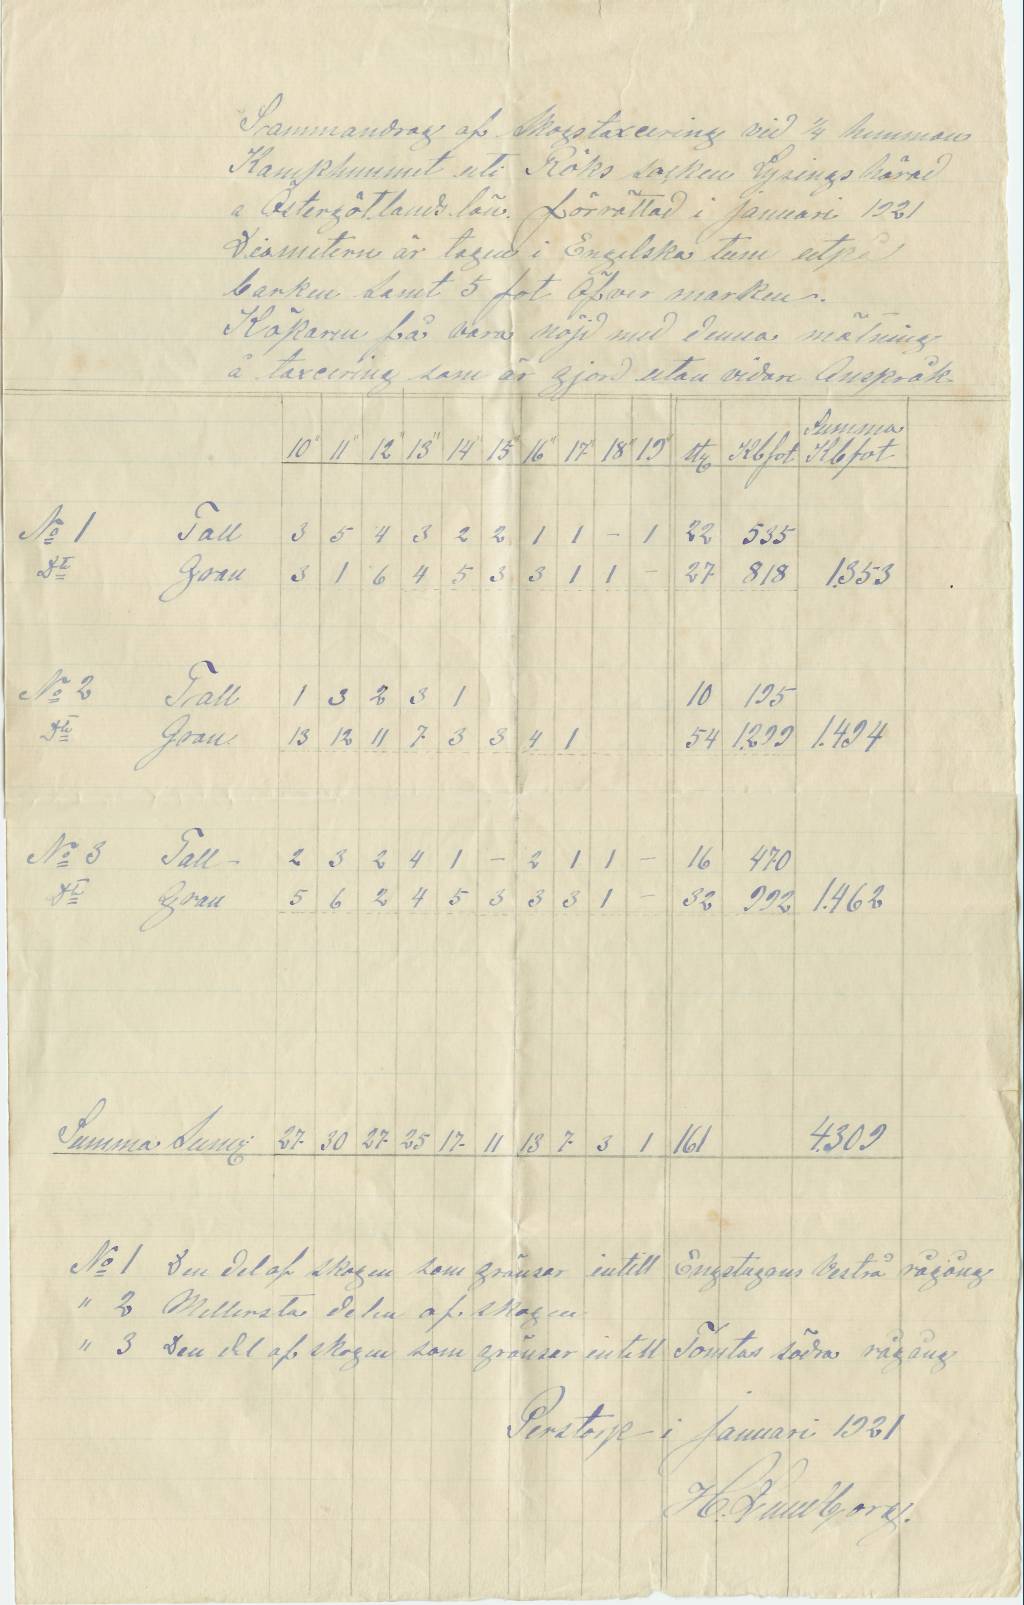 Sammandrag af Skogstaxering vid 1/4 hemman
Kampehemmet uti Röks socken Lysings härad
a Östergötlands län. förrättad i januari 1921
Diametern är tagen i Engelska tum utpå
barken samt 5 fot Öfver marken.
Köparen få vara nöjd med denna mätning
a taxering som är gjord utan vidare Anspråk.
10" 11" 12" 13" 14" 15" 16" 17" 18" 19" Kbfot Summa Kbfot
No 1 Tall 3 5 4 3 2 2 1 1 – 1 22 535
Dto Gran 3 1 6 4 5 3 3 1 1 – 27 818 1.353
No 2 Tall 1 3 2 3 1 10 195
Dto Gran 13 12 11 7 3 3 4 1 54 1299 1.494
No 3 Tall – 2 3 2 4 1 – 2 1 1 – 16 470
Dto Gran 5 6 2 4 5 3 3 3 1 – 32 992 1.462
Summa 27 30 27 25 17 11 13 7 3 1 161 4.309
No 1 Den del af skogen som gränsar intill Engstugans Vestra rågång
" 2 Mellersta delen af skogen
" 3 Den del af skogen som gränsar intill Tomtas södra rågång
Perstorp i januari 1921
H. Lundborg.